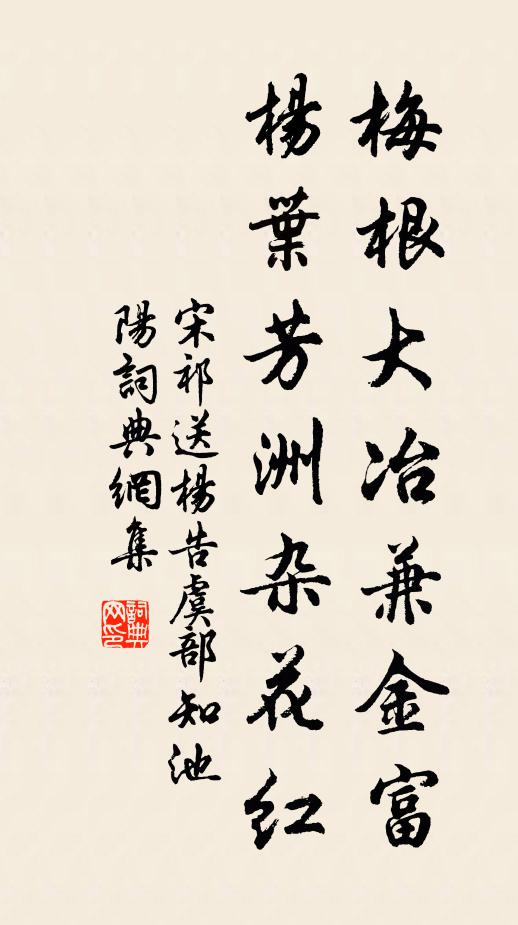 梅根大冶兼金富
楊葉芳洲杂花红
宋祁送楊告虞部知池
陽詞典網集
詞典
网印